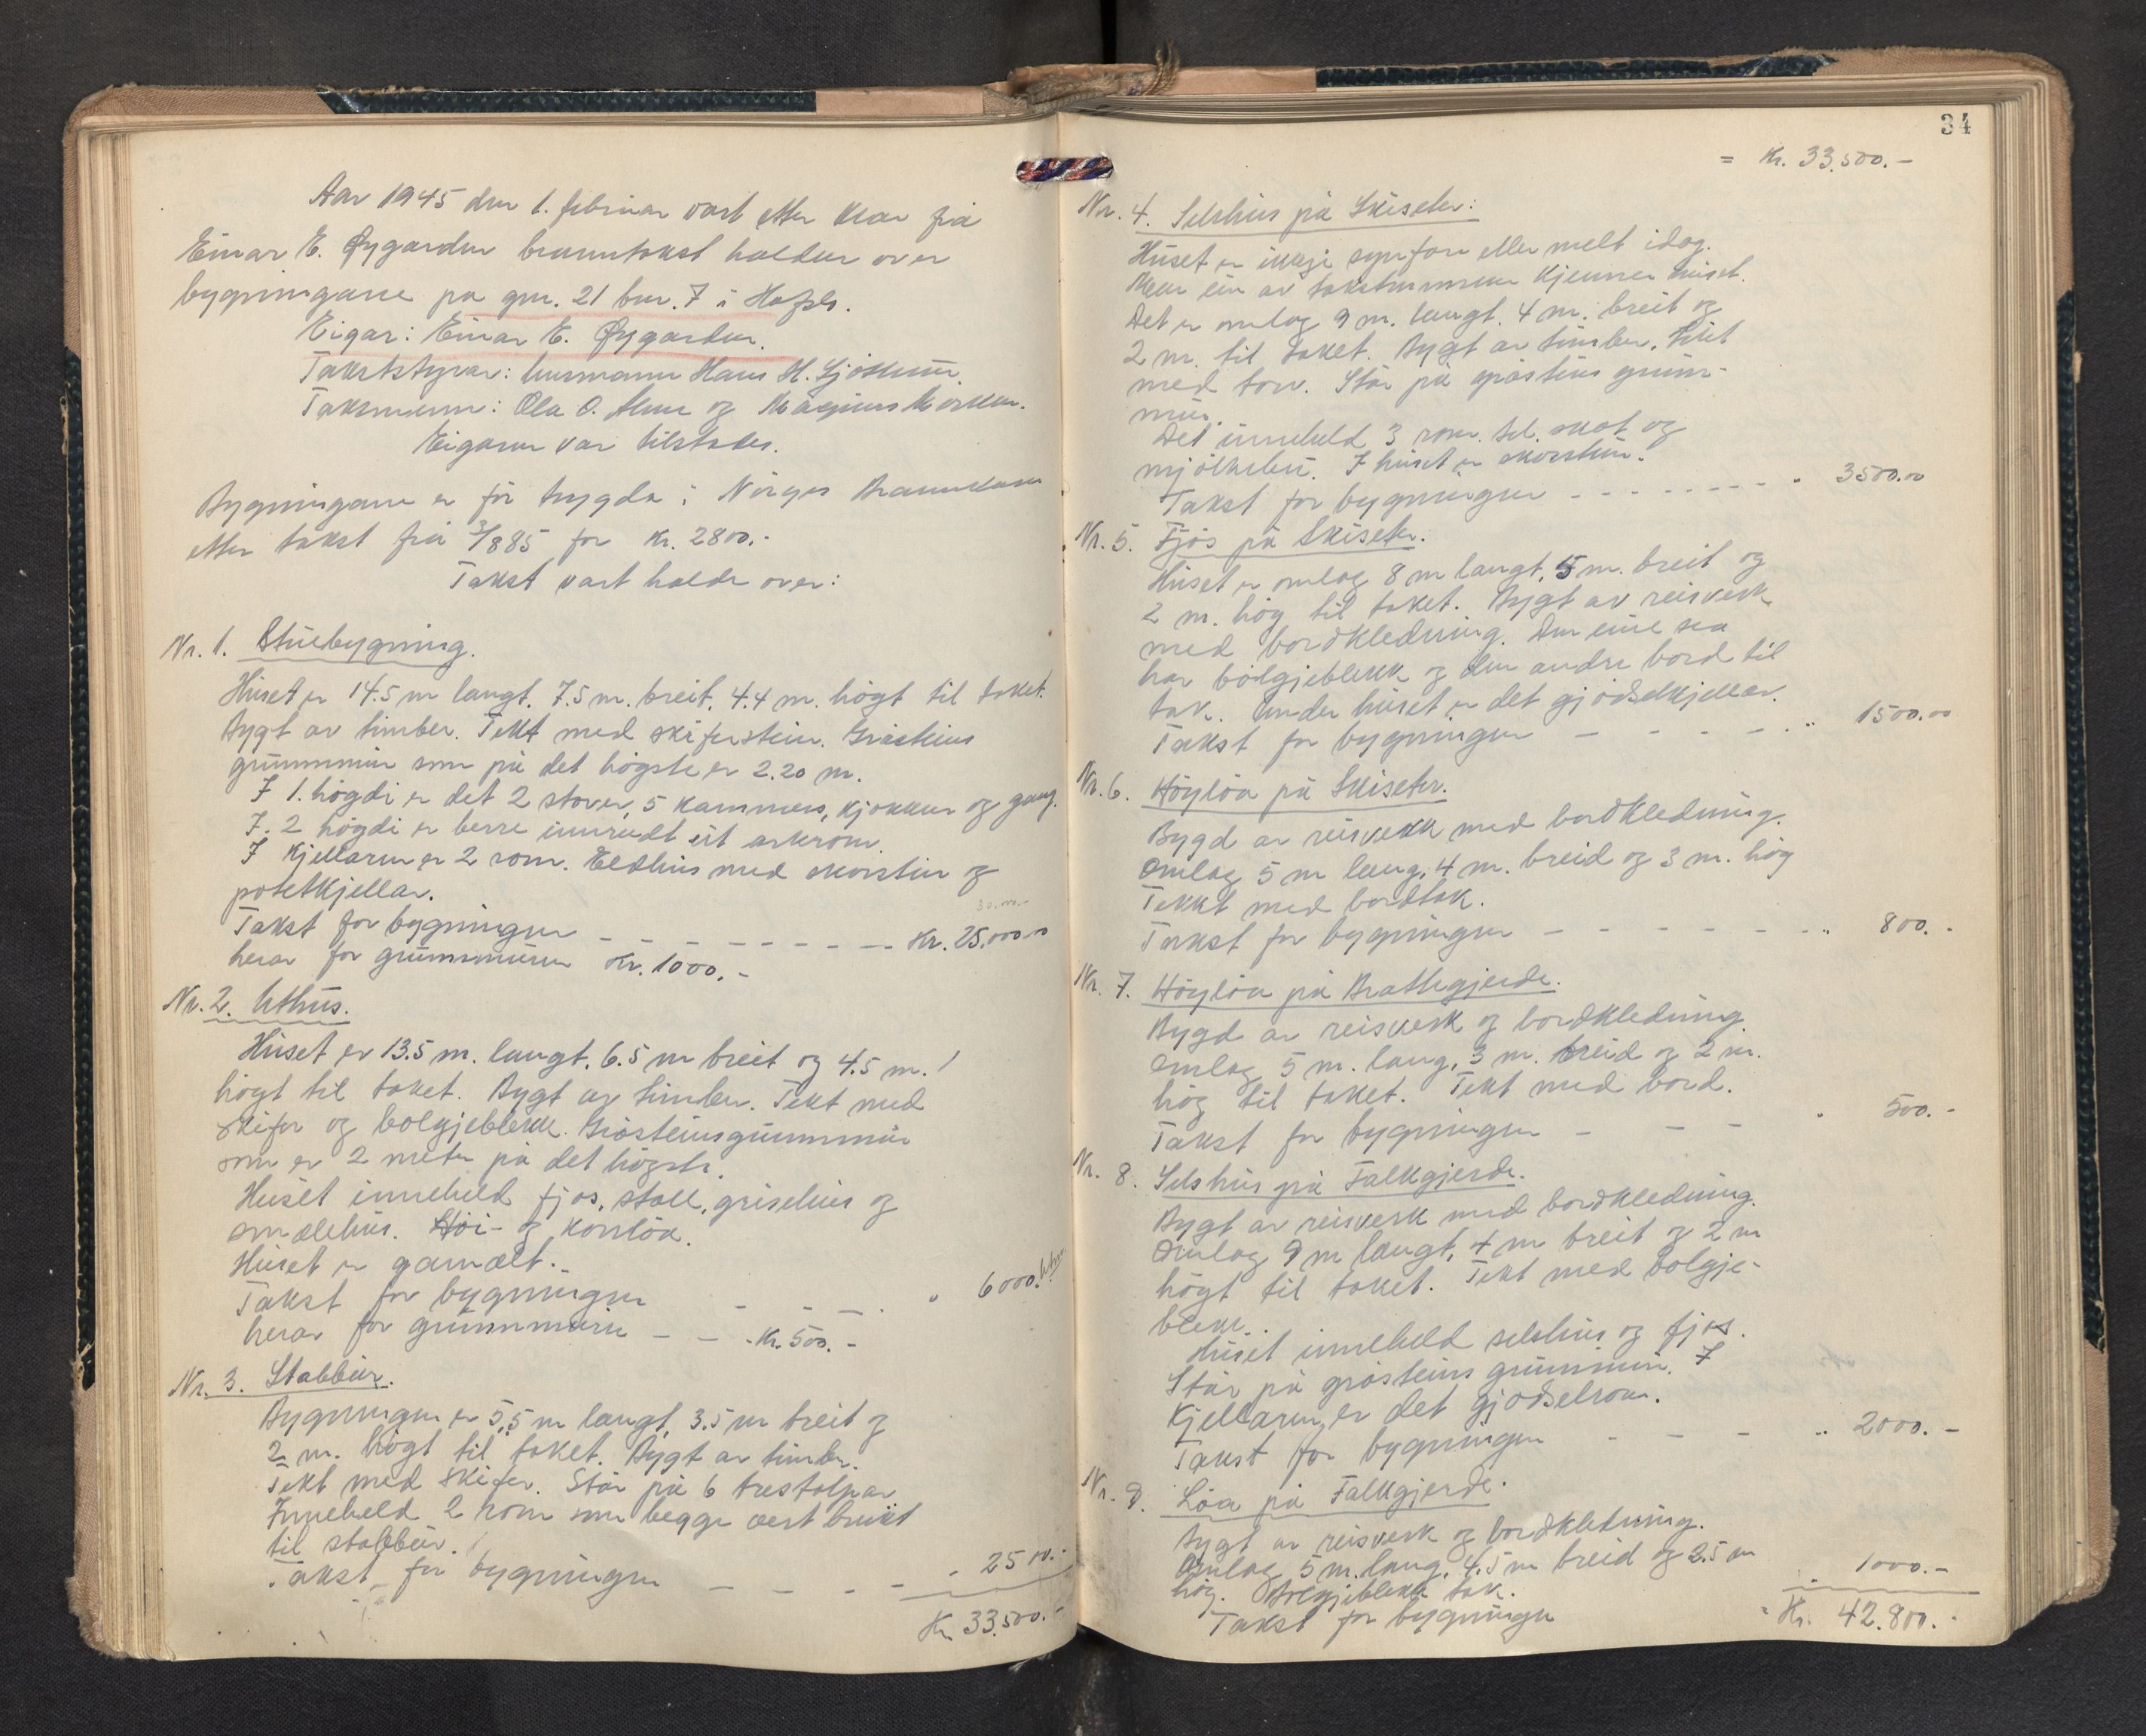 Aar 1945 den 1. februar vart etter krav frå
Einar E. Øygarden branntakst halden over
bygningane på gnr. 21 bnr. 7 i Hafslo.
Eigar: Einar E. Øygarden.
Takststyrar: lensmann Hans H. Sjøtun.
Taksmenn: Ola O. Alme og Magnus Morken.
Eigaren var tilstades.
Bygningane er før trygda i Norges Brannkasse
etter takst frå 3/8 85 for kr. 2800.-
Takst vart halde over:
Nr. 1. Stuebygning.
Huset er 14.5 m langt. 7.5 m. breit. 4.4 m. högt til taket.
Bygt av timber. Tekt med skiferstein. Gråsteins
grunnmur som på det högste er 2.20 m.
I 1. högdi er det 2 stover, 5 kammers, kjökken og gang.
I. 2 högdi er berre innreidt eit arkrom.
I kjellaren er 2 rom. Eldhus med skorstein og
potetkjellar.
30.000.-
Takst for bygningen - - - - - - - - Kr. 25.000.00
herav for grunnmuren kr. 1000.-
Nr. 2. Uthus.
Huset er 13.5 m. langt. 6.5 m breit og 4.5 m.
högt til taket. Bygt av timber. Tekt med
skifer og bolgjeblekk. Gråsteinsgrunnmur
som er 2 meter på det högste.
Huset inneheld fjos, stall, grisehus og
smalehus. Höi- og kornlöa.
Huset er gamalt.
Takst for bygningen - - - . " 6000.
herav for grunnmuren - - . Kr. 500. -
Nr. 3. Stabbur.
Bygningen er 5,5 m langt, 3.5 m breit og
2 m. högt til taket. Bygt av timber.
Tekt med skifer. Står på 6 trestolpar
Inneheld 2 rom som begge vert brukt
til stabbur.
Takst for bygningen - - - - " 2500.-
Kr. 33.500.-
34
= Kr. 33.500.-
Nr. 4. Selshus på Skiseter:
Huset er ikkje synfare eller melt idag.
Men ein av takstmennene kjenner huset.
Det er omlag 9 m. langt. 4 m. breit og
2 m. til taket. Bygt av timber. Tekt
med torv. Står på gråsteins grunn-
mur.
Det inneheld 3 rom. Sel. skot og
mjölkebu. I huset er skorstein.
Takst for bygningen - - - - - - - - " 3500.00
Nr. 5. Fjös på Skiseter.
Huset er omlag 8 m langt, 5 m. breit og
2 m. hög til taket. Bygt av reisverk
med bordkledning. Den eine sea
har bölgjeblekk og den andre bord til
tak. Under huset er det gjödselkjellar.
Takst for bygningen - - - - " 1500.00
Nr. 6. Höylöa på Skiseter.
Bygd av reisverk med bordkledning.
Omlag 5 m lang, 4 m. breid og 3 m. hög
Tekkt med bordtak.
Takst for bygningen - - - - - - " 800. -
Nr. 7. Höylöa på Brattegjerde.
Bygd av reisverk og bordkledning.
Omlag 5 m. lang, 3 m. breid og 2 m.
hög til taket. Tekt med bord.
Takst for bygningen - - - " 500. -
Nr. 8. Selshus på Falkgjerde.
Bygt av reisverk med bordkledning.
Omlag 9 m langt, 4 m breit og 2 m
högt til taket. Tekt med bolgje-
blekk.
Huset inneheld selshus og fjos.
Står på gråsteins grunnmur. I
Kjellaren er det gjödselrom.
Takst for bygningen - - - " 2000. -
Nr. 9. Löa på Falkgjerde.
Bygt av reisverk og bordkledning.
Omlag 5 m. lang, 4.5 m breid og 2.5 m
hög. Bölgjeblekk tak.
Takst for bygningen " 1000.-
= Kr. 42.800.-